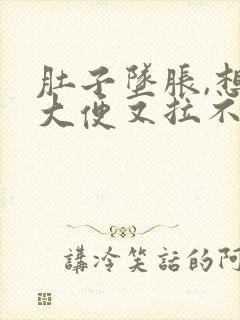 肚子墜脹,想
大便又拉不
講冷笑話的阿